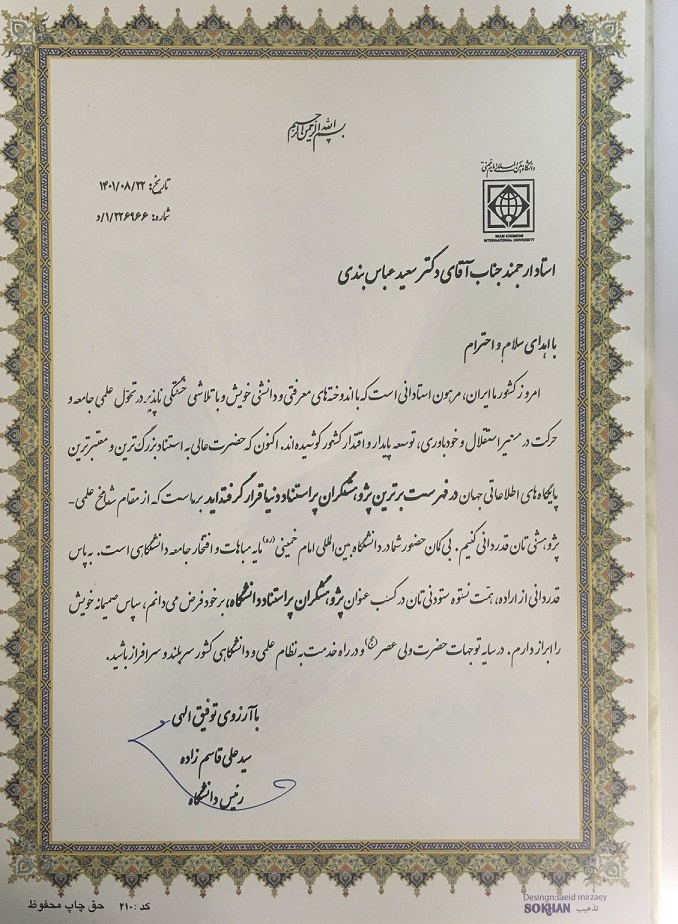 بسم الله الرحمن الرحیم
دانشگاه بین المللی امام خمینی (ره)
IMAM KHOMEINI
INTERNATIONAL UNIVERSITY
تاریخ: ۱۴۰۱/۰۸/۲۲
شماره: ۱/۲۲۶۹۶۶/د
استاد ارجمند جناب آقای دکتر سعید عباس بندی
با اهدای سلام و احترام
امروز کشور ما ایران، مرهون استادانی است که با اندوخته‌های معرفتی و دانشی خویش و با تلاشی خستگی ناپذیر در تحول علمی جامعه و
حرکت در مسیر استقلال و خودباوری، توسعه پایدار و اقتدار کشور کوشیده‌اند. اکنون که حضرت عالی به استناد بزرگ‌ترین و معتبرترین
پایگاه‌های اطلاعاتی جهان در فهرست برترین پژوهشگران پراستناد دنیا قرار گرفته‌اید بر ماست که از مقام شامخ علمی-
پژوهشی تان قدردانی کنیم. بی گمان حضور شما در دانشگاه بین المللی امام خمینی (ره) مایه مباهات و افتخار جامعه دانشگاهی است. به پاس
قدردانی از اراده، همّت نستوه ستودنی تان در کسب عنوان پژوهشگران پراستناد دانشگاه، بر خود فرض می‌دانم، سپاس صمیمانه خویش
را ابراز دارم. در سایه توجهات حضرت ولی عصر (عج) و در راه خدمت به نظام علمی و دانشگاهی کشور سربلند و سرافراز باشید.
با آرزوی توفیق الهی
سید علی قاسم زاده
رئیس دانشگاه
کد: ۲۱۰ حق چاپ محفوظ
Desingn:saeid mirzaey
SOKHAN تذهیب